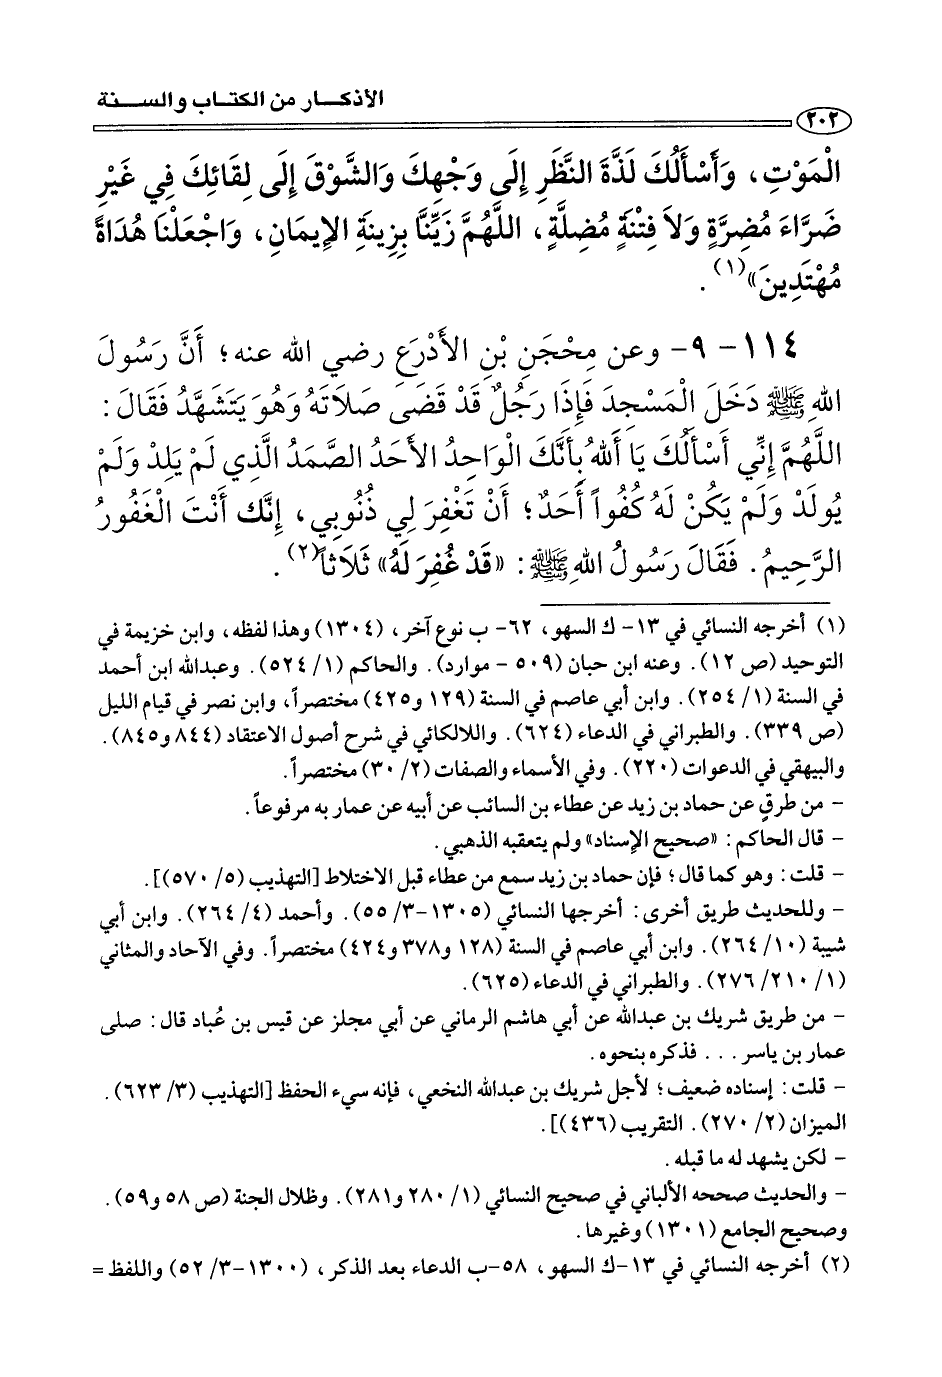 الأذكــار من الكتــاب والســنة
٢٠٢
الْمَوْتِ، وَأَسْأَلُكَ لَذَّةَ النَّظَرِ إِلَى وَجْهِكَ وَالشَّوْقَ إِلَى لِقَائِكَ فِي غَيْرِ
ضَرَّاءَ مُضِرَّةٍ وَلاَ فِتْنَةٍ مُضِلَّةٍ، اللَّهُمَّ زَيِّنَّا بِزِينَةِ الإِيمَانِ، وَاجْعَلْنَا هُدَاةً
مُهْتَدِينَ»(١).
١١٤ - ٩- وعن مِحْجَنِ بْنِ الأَدْرَعِ رضي الله عنه؛ أَنَّ رَسُولَ
اللهِ ﷺ دَخَلَ الْمَسْجِدَ فَإِذَا رَجُلٌ قَدْ قَضَى صَلاَتَهُ وَهُوَ يَتَشَهَّدُ فَقَالَ:
اللَّهُمَّ إِنِّي أَسْأَلُكَ يَا أَللهُ بِأَنَّكَ الْوَاحِدُ الأَحَدُ الصَّمَدُ الَّذِي لَمْ يَلِدْ وَلَمْ
يُولَدْ وَلَمْ يَكُنْ لَهُ كُفُواً أَحَدٌ؛ أَنْ تَغْفِرَ لِي ذُنُوبِي، إِنَّكَ أَنْتَ الْغَفُورُ
الرَّحِيمُ. فَقَالَ رَسُولُ اللهِ ﷺ: «قَدْ غُفِرَ لَهُ» ثَلاَثاً(٢).
(١) أخرجه النسائي في ١٣- ك السهو، ٦٢- ب نوع آخر، (١٣٠٤) وهذا لفظه، وابن خزيمة في
التوحيد (ص ١٢). وعنه ابن حبان (٥٠٩ - موارد). والحاكم (١/ ٥٢٤). وعبدالله ابن أحمد
في السنة (١/ ٢٥٤). وابن أبي عاصم في السنة (١٢٩ و٤٢٥) مختصراً، وابن نصر في قيام الليل
(ص ٣٣٩). والطبراني في الدعاء (٦٢٤). واللالكائي في شرح أصول الاعتقاد (٨٤٤ و٨٤٥).
والبيهقي في الدعوات (٢٢٠). وفي الأسماء والصفات (٢/ ٣٠) مختصراً.
- من طرقٍ عن حماد بن زيد عن عطاء بن السائب عن أبيه عن عمار به مرفوعاً.
- قال الحاكم: «صحيح الإسناد» ولم يتعقبه الذهبي.
- قلت: وهو كما قال؛ فإن حماد بن زيد سمع من عطاء قبل الاختلاط [التهذيب (٥/ ٥٧٠)].
- وللحديث طريق أخرى: أخرجها النسائي (١٣٠٥-٣/ ٥٥). وأحمد (٤/ ٢٦٤). وابن أبي
شيبة (١٠/ ٢٦٤). وابن أبي عاصم في السنة (١٢٨ و٣٧٨ و٤٢٤) مختصراً. وفي الآحاد والمثاني
(١/ ٢١٠/ ٢٧٦). والطبراني في الدعاء (٦٢٥).
- من طريق شريك بن عبدالله عن أبي هاشم الرماني عن أبي مجلز عن قيس بن عُباد قال: صلى
عمار بن ياسر ... فذكره بنحوه.
- قلت: إسناده ضعيف؛ لأجل شريك بن عبدالله النخعي، فإنه سيء الحفظ [التهذيب (٣/ ٦٢٣).
الميزان (٢/ ٢٧٠). التقريب (٤٣٦)].
- لكن يشهد له ما قبله.
- والحديث صححه الألباني في صحيح النسائي (١/ ٢٨٠ و٢٨١). وظلال الجنة (ص ٥٨ و٥٩).
وصحيح الجامع (١٣٠١) وغيرها.
(٢) أخرجه النسائي في ١٣-ك السهو، ٥٨-ب الدعاء بعد الذكر، (١٣٠٠-٣/ ٥٢) واللفظ =